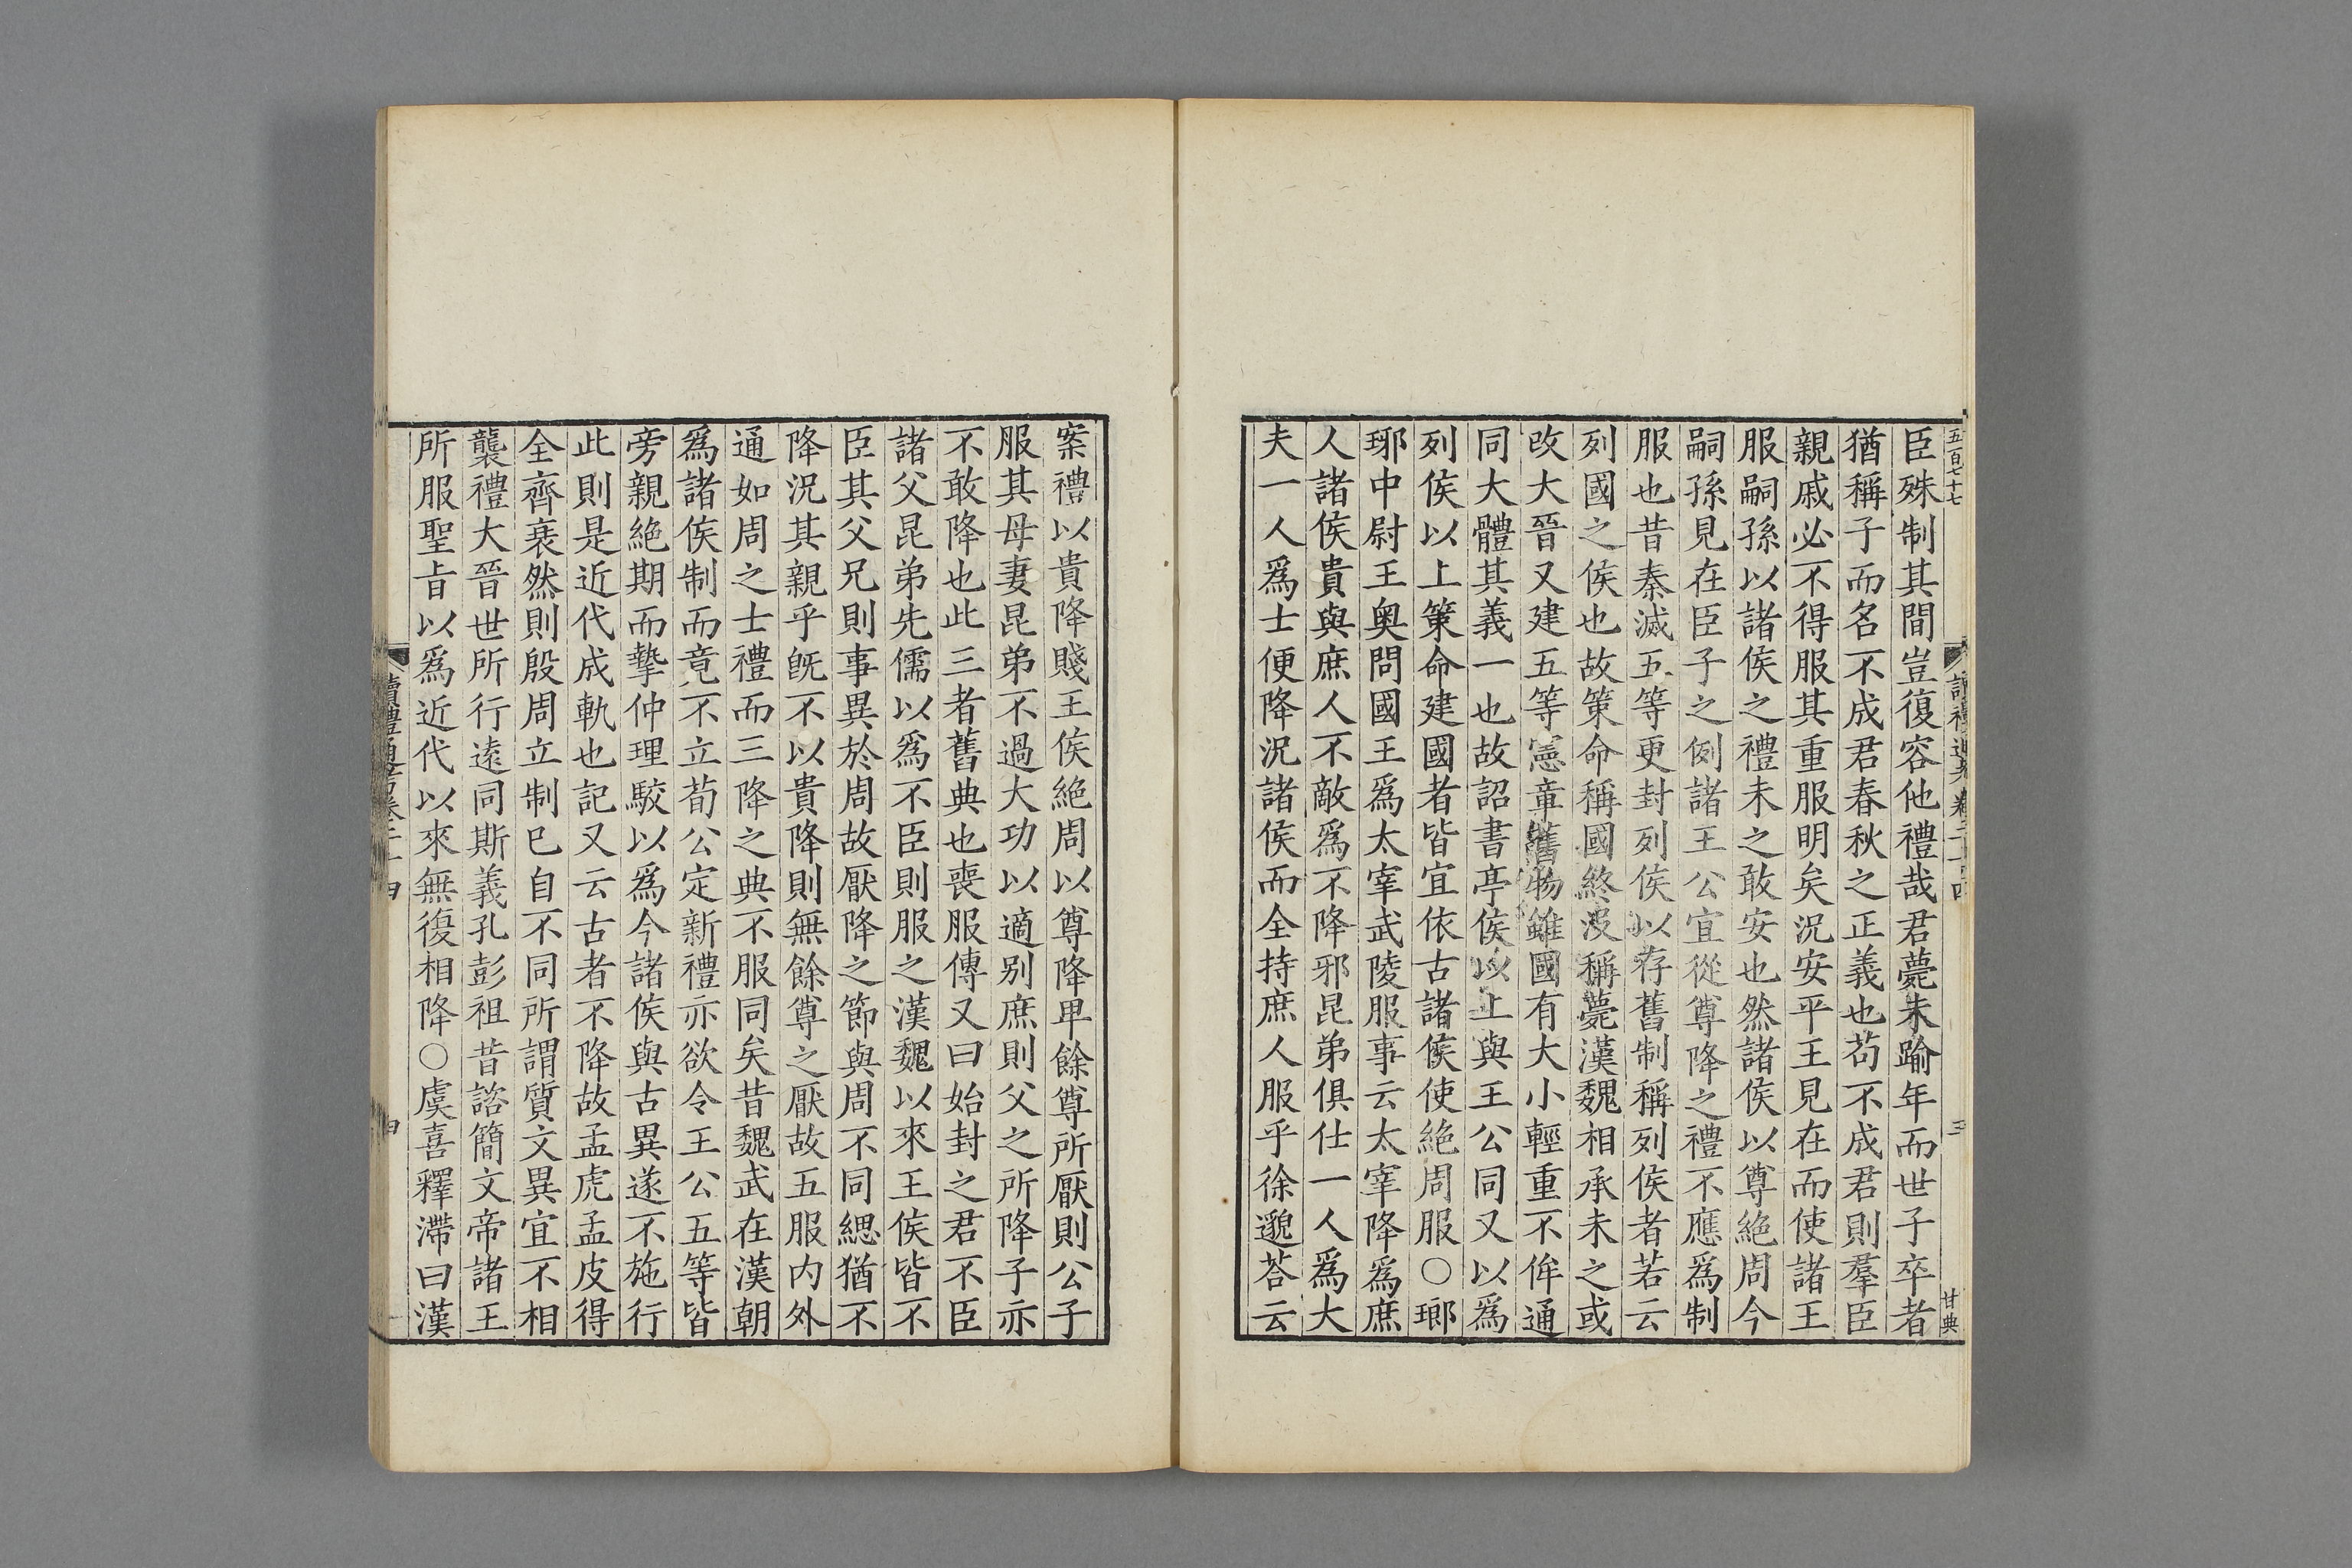 五百七十七
臣殊制其間豈復容他禮哉君薨未踰年而世子卒者
猶稱子而名不成君春秋之正義也苟不成君則羣臣
親戚必不得服其重服明矣況安平王見在而使諸王
服嗣孫以諸侯之禮未之敢安也然諸侯以尊絶周今
嗣孫見在臣子之例諸王公宜從尊降之禮不應爲制
服也昔秦滅五等更封列侯以存舊制稱列侯者若云
列國之侯也故策命稱國終沒稱薨漢魏相承未之或
改大晉又建五等憲章舊物雖國有大小輕重不侔通
同大體其義一也故詔書亭侯以上與王公同又以爲
列侯以上策命建國者皆宜依古諸侯使絶周服○瑯
琊中尉王奥問國王爲太宰武陵服事云太宰降爲庶
人諸侯貴與庶人不敵爲不降邪昆弟俱仕一人爲大
夫一人爲士便降況諸侯而全持庶人服乎徐邈荅云
三
甘典
案禮以貴降賤王侯絶周以尊降𤰞餘尊所厭則公子
服其母妻昆弟不過大功以適别庶則父之所降子亦
不敢降也此三者舊典也喪服傳又曰始封之君不臣
諸父昆弟先儒以爲不臣則服之漢魏以來王侯皆不
臣其父兄則事異於周故厭降之節與周不同緦猶不
降況其親乎旣不以貴降則無餘尊之厭故五服内外
通如周之士禮而三降之典不服同矣昔魏武在漢朝
爲諸侯制而竟不立荀公定新禮亦欲令王公五等皆
旁親絶期而摯仲理駮以爲今諸侯與古異遂不施行
此則是近代成軌也記又云古者不降故孟虎孟皮得
全齊衰然則殷周立制巳自不同所謂質文異宜不相
襲禮大晉世所行遠同斯義孔彭祖昔諮簡文帝諸王
所服聖㫖以爲近代以來無復相降○虞喜釋滯曰漢
讀禮通考卷二十四
四